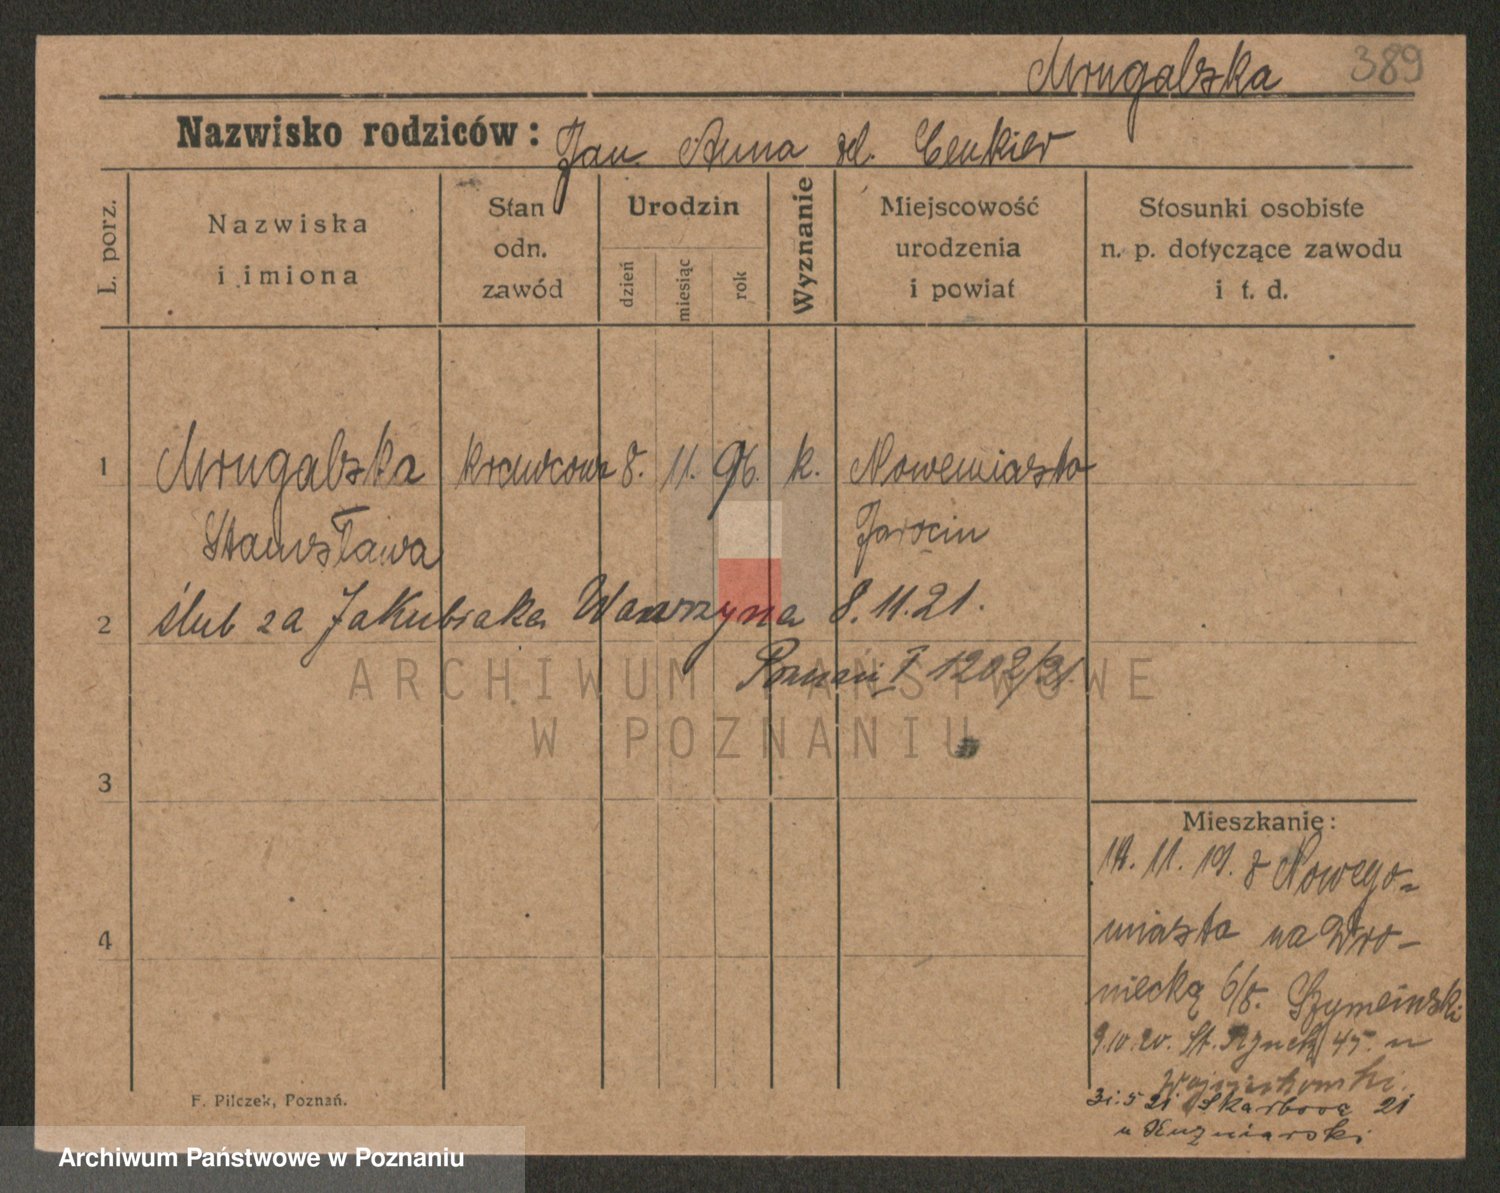 Mrugalska 389
Nazwisko rodziców: Jan Anna zd. Cenkier
L. porz.
Nazwiska
i imiona
Stan
odn.
zawód
Urodzin
dzień
miesiąc
rok
Wyznanie
Miejscowość
urodzenia
i powiat
Stosunki osobiste
n. p. dotyczące zawodu
i t. d.
1 Mrugalska krawcowa 8. 11. 96. k. Nowemiasto
Stanisława Jarocin
2 ślub za Jakubiaka Wawrzyna 8.11.21.
Poznań I 1202/21
ARCHIWUM PAŃSTWOWE
W POZNANIU
3
Mieszkanie:
14. 11. 19. z Nowego-
miasta na Wro-
4
niecką 6/8.
9.10.20. St. Rynek 45. u
31.5 21 Skarbowa 21
u Kuzniarski
F. Pilczek, Poznań.
Archiwum Państwowe w Poznaniu